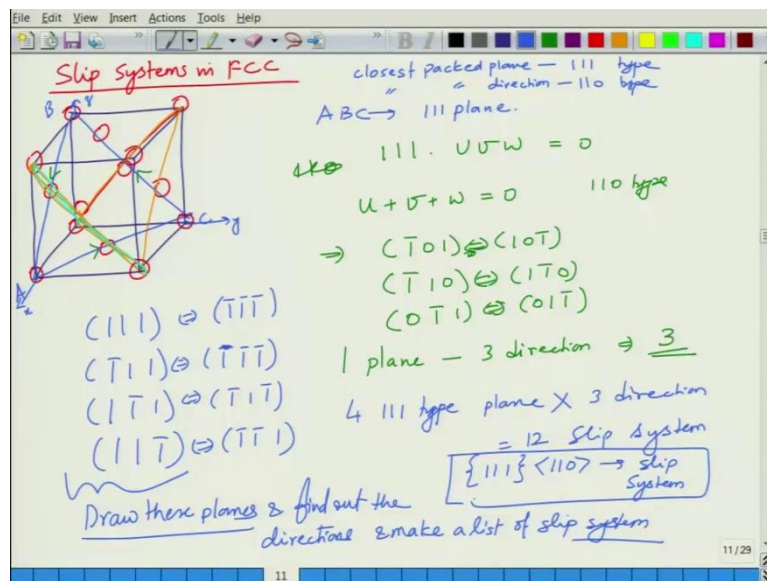 File Edit View Insert Actions Tools Help
Slip Systems in FCC
closest packed plane — 111 type
" " direction — 110 type
ABC → 111 plane.
111 . U V W = 0
U + V + W = 0 110 type
⇒ (1̅01) ⇔ (101̅)
(1̅10) ⇔ (11̅0)
(01̅1) ⇔ (011̅)
1 plane — 3 direction ⇒ 3
B
C
y
A
x
(111) ⇔ (1̅1̅1̅)
(1̅11) ⇔ (1̅1̅1̅)
(11̅1) ⇔ (1̅11̅)
(111̅) ⇔ (1̅1̅1)
4 111 type plane X 3 direction
= 12 Slip system
{111} <110> → slip
system
Draw these planes & find out the
directions & make a list of slip system
11 / 29
11